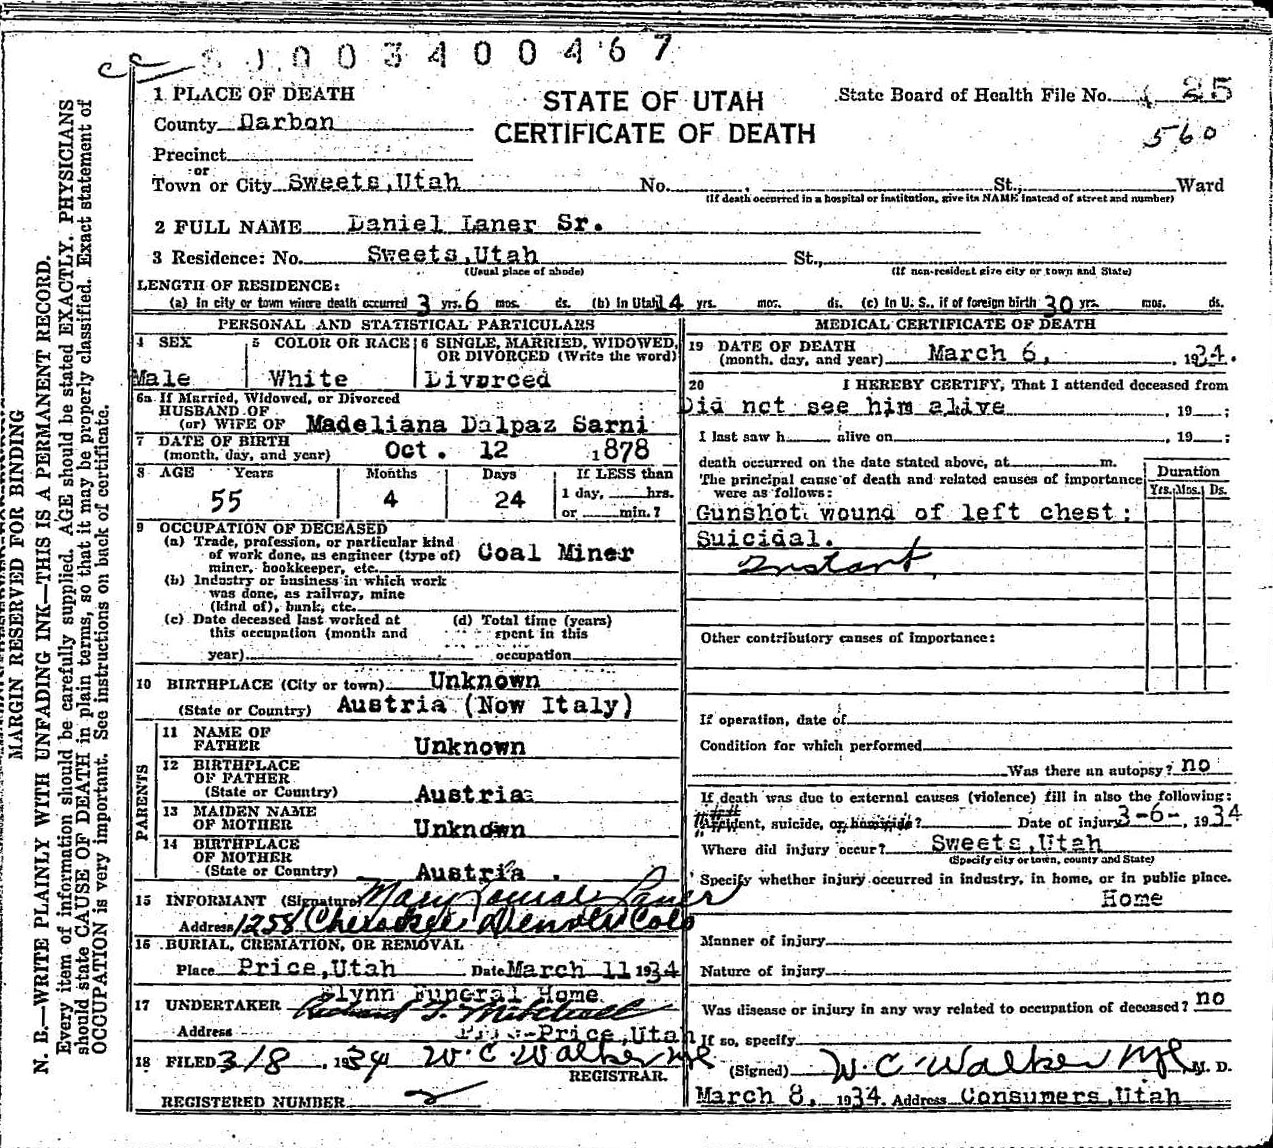 S J 0 0 3 4 0 0 4 6 7
1 PLACE OF DEATH
STATE OF UTAH
CERTIFICATE OF DEATH
State Board of Health File No. 25
560
County Darbon
Precinct
or
Town or City Sweets,Utah No. St., Ward
(If death occurred in a hospital or institution, give its NAME instead of street and number)
2 FULL NAME Daniel Laner Sr.
3 Residence: No. Sweets,Utah St.,
(Usual place of abode) (If non-resident give city or town and State)
LENGTH OF RESIDENCE:
(a) In city or town where death occurred 3 yrs. 6 mos. ds. (b) In Utah 14 yrs. mos. ds. (c) In U. S., if of foreign birth 30 yrs. mos. ds.
PERSONAL AND STATISTICAL PARTICULARS
4 SEX 5 COLOR OR RACE 6 SINGLE, MARRIED, WIDOWED,
OR DIVORCED (Write the word)
Male White Divorced
6a If Married, Widowed, or Divorced
HUSBAND OF
(or) WIFE OF Madeliana Dalpaz Sarni
7 DATE OF BIRTH
(month, day, and year) Oct. 12 1878
8 AGE Years Months Days If LESS than
55 4 24 1 day, hrs.
or min.?
9 OCCUPATION OF DECEASED
(a) Trade, profession, or particular kind
of work done, as engineer (type of) Coal Miner
miner, bookkeeper, etc.
(b) Industry or business in which work
was done, as railway, mine
(kind of), bank, etc.
(c) Date deceased last worked at (d) Total time (years)
this occupation (month and spent in this
year) occupation
10 BIRTHPLACE (City or town) Unknown
(State or Country) Austria (Now Italy)
PARENTS
11 NAME OF
FATHER Unknown
12 BIRTHPLACE
OF FATHER
(State or Country) Austria
13 MAIDEN NAME
OF MOTHER Unknown
14 BIRTHPLACE
OF MOTHER
(State or Country) Austria .
15 INFORMANT (Signature) Mary Louise Laner
Address 1258 Cherokee Denver Colo
16 BURIAL, CREMATION, OR REMOVAL
Place Price,Utah Date March 11 1934
Flynn Funeral Home
17 UNDERTAKER Richard T. Mitchell
Address Price,Utah
18 FILED 3/8, 1934 W. C. Walker MD
REGISTRAR.
REGISTERED NUMBER 2
MEDICAL CERTIFICATE OF DEATH
19 DATE OF DEATH
(month, day, and year) March 6, 1934.
20 I HEREBY CERTIFY, That I attended deceased from
Did not see him alive , 19 ;
I last saw h alive on , 19 ;
death occurred on the date stated above, at m.
The principal cause of death and related causes of importance
were as follows:
Duration
Yrs. Mos. Ds.
Gunshot wound of left chest:
Suicidal.
Instant
Other contributory causes of importance:
If operation, date of
Condition for which performed
Was there an autopsy? no
If death was due to external causes (violence) fill in also the following:
Accident, suicide, or homicide? Date of injury 3-6-, 1934
Where did injury occur? Sweets,Utah
(Specify city or town, county and State)
Specify whether injury occurred in industry, in home, or in public place.
Home
Manner of injury
Nature of injury
Was disease or injury in any way related to occupation of deceased? no
If so, specify
(Signed) W. C. Walker MD M. D.
March 8, 1934. Address Consumers,Utah
MARGIN RESERVED FOR BINDING
N. B.—WRITE PLAINLY WITH UNFADING INK—THIS IS A PERMANENT RECORD.
Every item of information should be carefully supplied. AGE should be stated EXACTLY. PHYSICIANS
should state CAUSE OF DEATH in plain terms, so that it may be properly classified. Exact statement of
OCCUPATION is very important. See instructions on back of certificate.